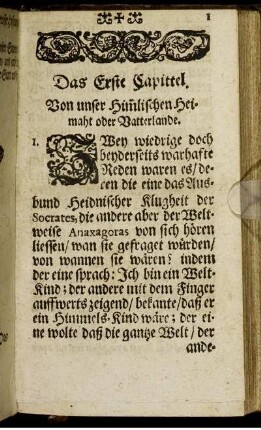 1
Das Erste Capittel.
Von unser Him̃lischen Hei-
maht oder Vatterlande.
1. ZWey wiedrige doch
beyderseits warhafte
Reden waren es/ de-
ren die eine das Aus-
bund Heidnischer Klugheit der
Socrates, die andere aber der Welt-
weise Anaxagoras von sich hören
liessen/ wan sie gefraget würden/
von wannen sie wären? indem
der eine sprach: Ich bin ein Welt-
Kind; der andere mit dem Finger
auffwerts zeigend/ bekante/ daß er
ein Himmels-Kind wäre; der ei-
ne wolte daß die gantze Welt/ der
ande-